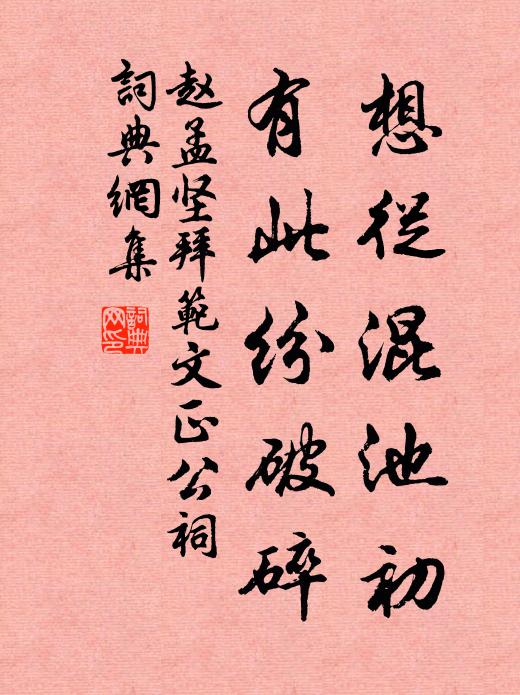 想從混池初
有此紛破碎
赵孟坚拜範文正公祠
詞典網集
詞典网印